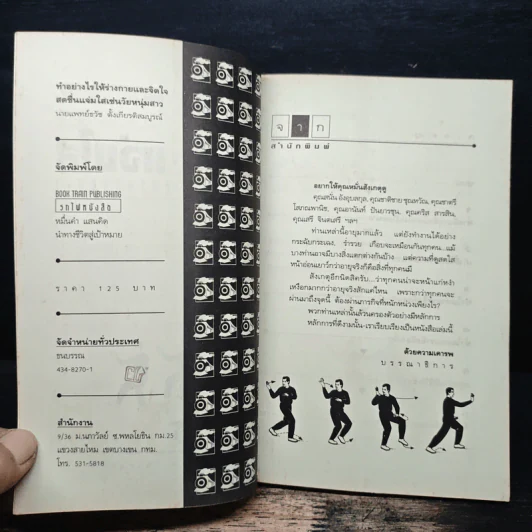 ทำอย่างไรให้ร่างกายและจิตใจ
สดชื่นแจ่มใสเช่นวัยหนุ่มสาว
นายแพทย์ธวัช ตั้งเกียรติสมบูรณ์
จัดพิมพ์โดย
BOOK TRAIN PUBLISHING
รถไฟหนังสือ
หมื่นคำ แสนคิด
นำทางชีวิตสู่เป้าหมาย
ราคา 125 บาท
จัดจำหน่ายทั่วประเทศ
ธนบรรณ
434-8270-1
สำนักงาน
9/36 ม.นภาวัลย์ ซ.พหลโยธิน กม.25
แขวงสายไหม เขตบางเขน กทม.
โทร. 531-5818
จาก
สำนักพิมพ์
อยากให้คุณหมั่นสังเกตุดู
คุณสนั่น อังอุบลกุล, คุณชาติชาย ชุณหวัณ, คุณชาตรี
โสภณพานิช, คุณอานันท์ ปันยารชุน, คุณดริส สารสิน,
คุณเสรี จินตเสรี ฯลฯ
ท่านเหล่านี้อายุมากแล้ว แต่ยังทำงานได้อย่าง
กระฉับกระเฉง, ร่ำรวย เกือบจะเหมือนกันทุกคน แม้
บางท่านอาจมีบางสิ่งแตกต่างกันบ้าง แต่ความที่ดูสดใส
หน้าอ่อนเยาว์กว่าอายุจริงก็คือสิ่งที่ทุกคนมี
สังเกตุอีกนิดสิครับ...ว่าทุกคนน่าจะหน้าแก่หง่ำ
เหงือกมากกว่าอายุจริงสักแค่ไหน เพราะกว่าทุกคนจะ
ผ่านมาถึงจุดนี้ ต้องผ่านภารกิจที่หนักหน่วงเพียงไร?
พวกท่านเหล่านั้นล้วนครองตัวอย่างมีหลักการ
หลักการที่ดีงามนั้น-เราเรียบเรียงเป็นหนังสือเล่มนี้
ด้วยความเคารพ
บรรณาธิการ